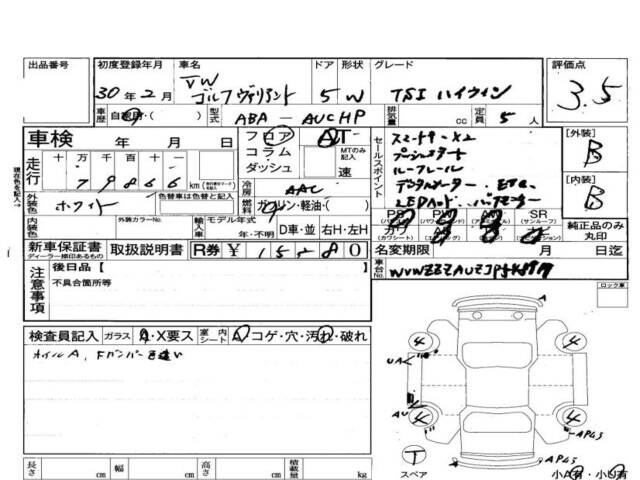 出品番号
初度登録年月 車名 ドア 形状 グレード 評価点
30年2月 VW ゴルフヴァリアント 5W TSI ハイライン 3.5
車歴 自家用・( ) 型式 ABA-AUCHP 排気量 cc 定員 5人
車検 年 月 日
フロア AT
コラム MTのみ記入
ダッシュ 速
走行 十 万 千 百 十 一
79866 km
冷房 AAC
外装色 ホワイト 色替車は色替と記入
燃料 ガソリン・軽油・( )
内装色 外装カラーNo. 輸入車 モデル年式 年・不明 D車・並 右H・左H
セールスポイント
スマートキー×2
プッシュスタート
ルーフレール
デジタルメーター ETC
LEDヘッド
PS PW AW SR
(パワステ) (パワーウィンド) (アルミホイール) (サンルーフ)
カワ
(カワシート) (エアバッグ)
[外装] B
[内装] B
純正品のみ丸印
新車保証書 取扱説明書 R券 ¥
ディーラー捺印あるもの
名変期限 月 日迄
車台No.
注意事項 後日品[ ]
不具合箇所等
ロック車
検査員記入 ガラス A・X要ス 室内シート A・コゲ・穴・汚れ・破れ
オイルA, Fバンパー色違い
4 4
UA
AU
4 4
AP43
AP43
T
スペア
小A有・小U有
長さ cm 幅 cm 高さ cm 積載量 kg
現在色を記入